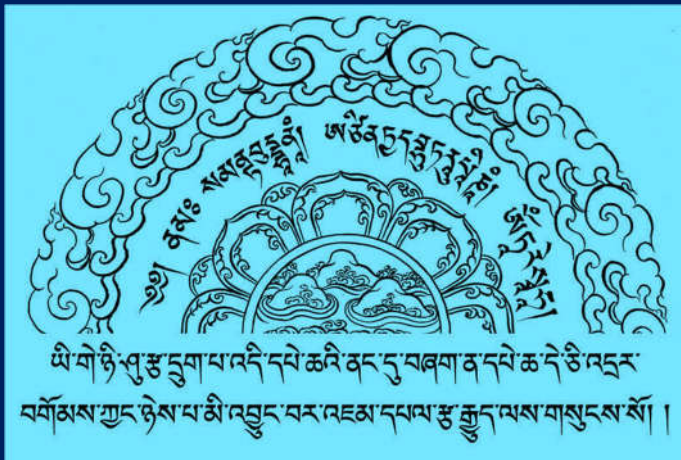 ༄༅། ནམཿ སམནྟབུདྡྷཱནཱཾ།
ཡི་གེ་ཉི་ཤུ་རྩ་དྲུག་པ་འདི་དཔེ་ཆའི་ནང་དུ་བཞག་ན་དཔེ་ཆ་དེ་ཅི་འདྲར་
བགོམས་ཀྱང་ཉེས་པ་མི་འབྱུང་བར་འཇམ་དཔལ་རྩ་རྒྱུད་ལས་གསུངས་སོ། །